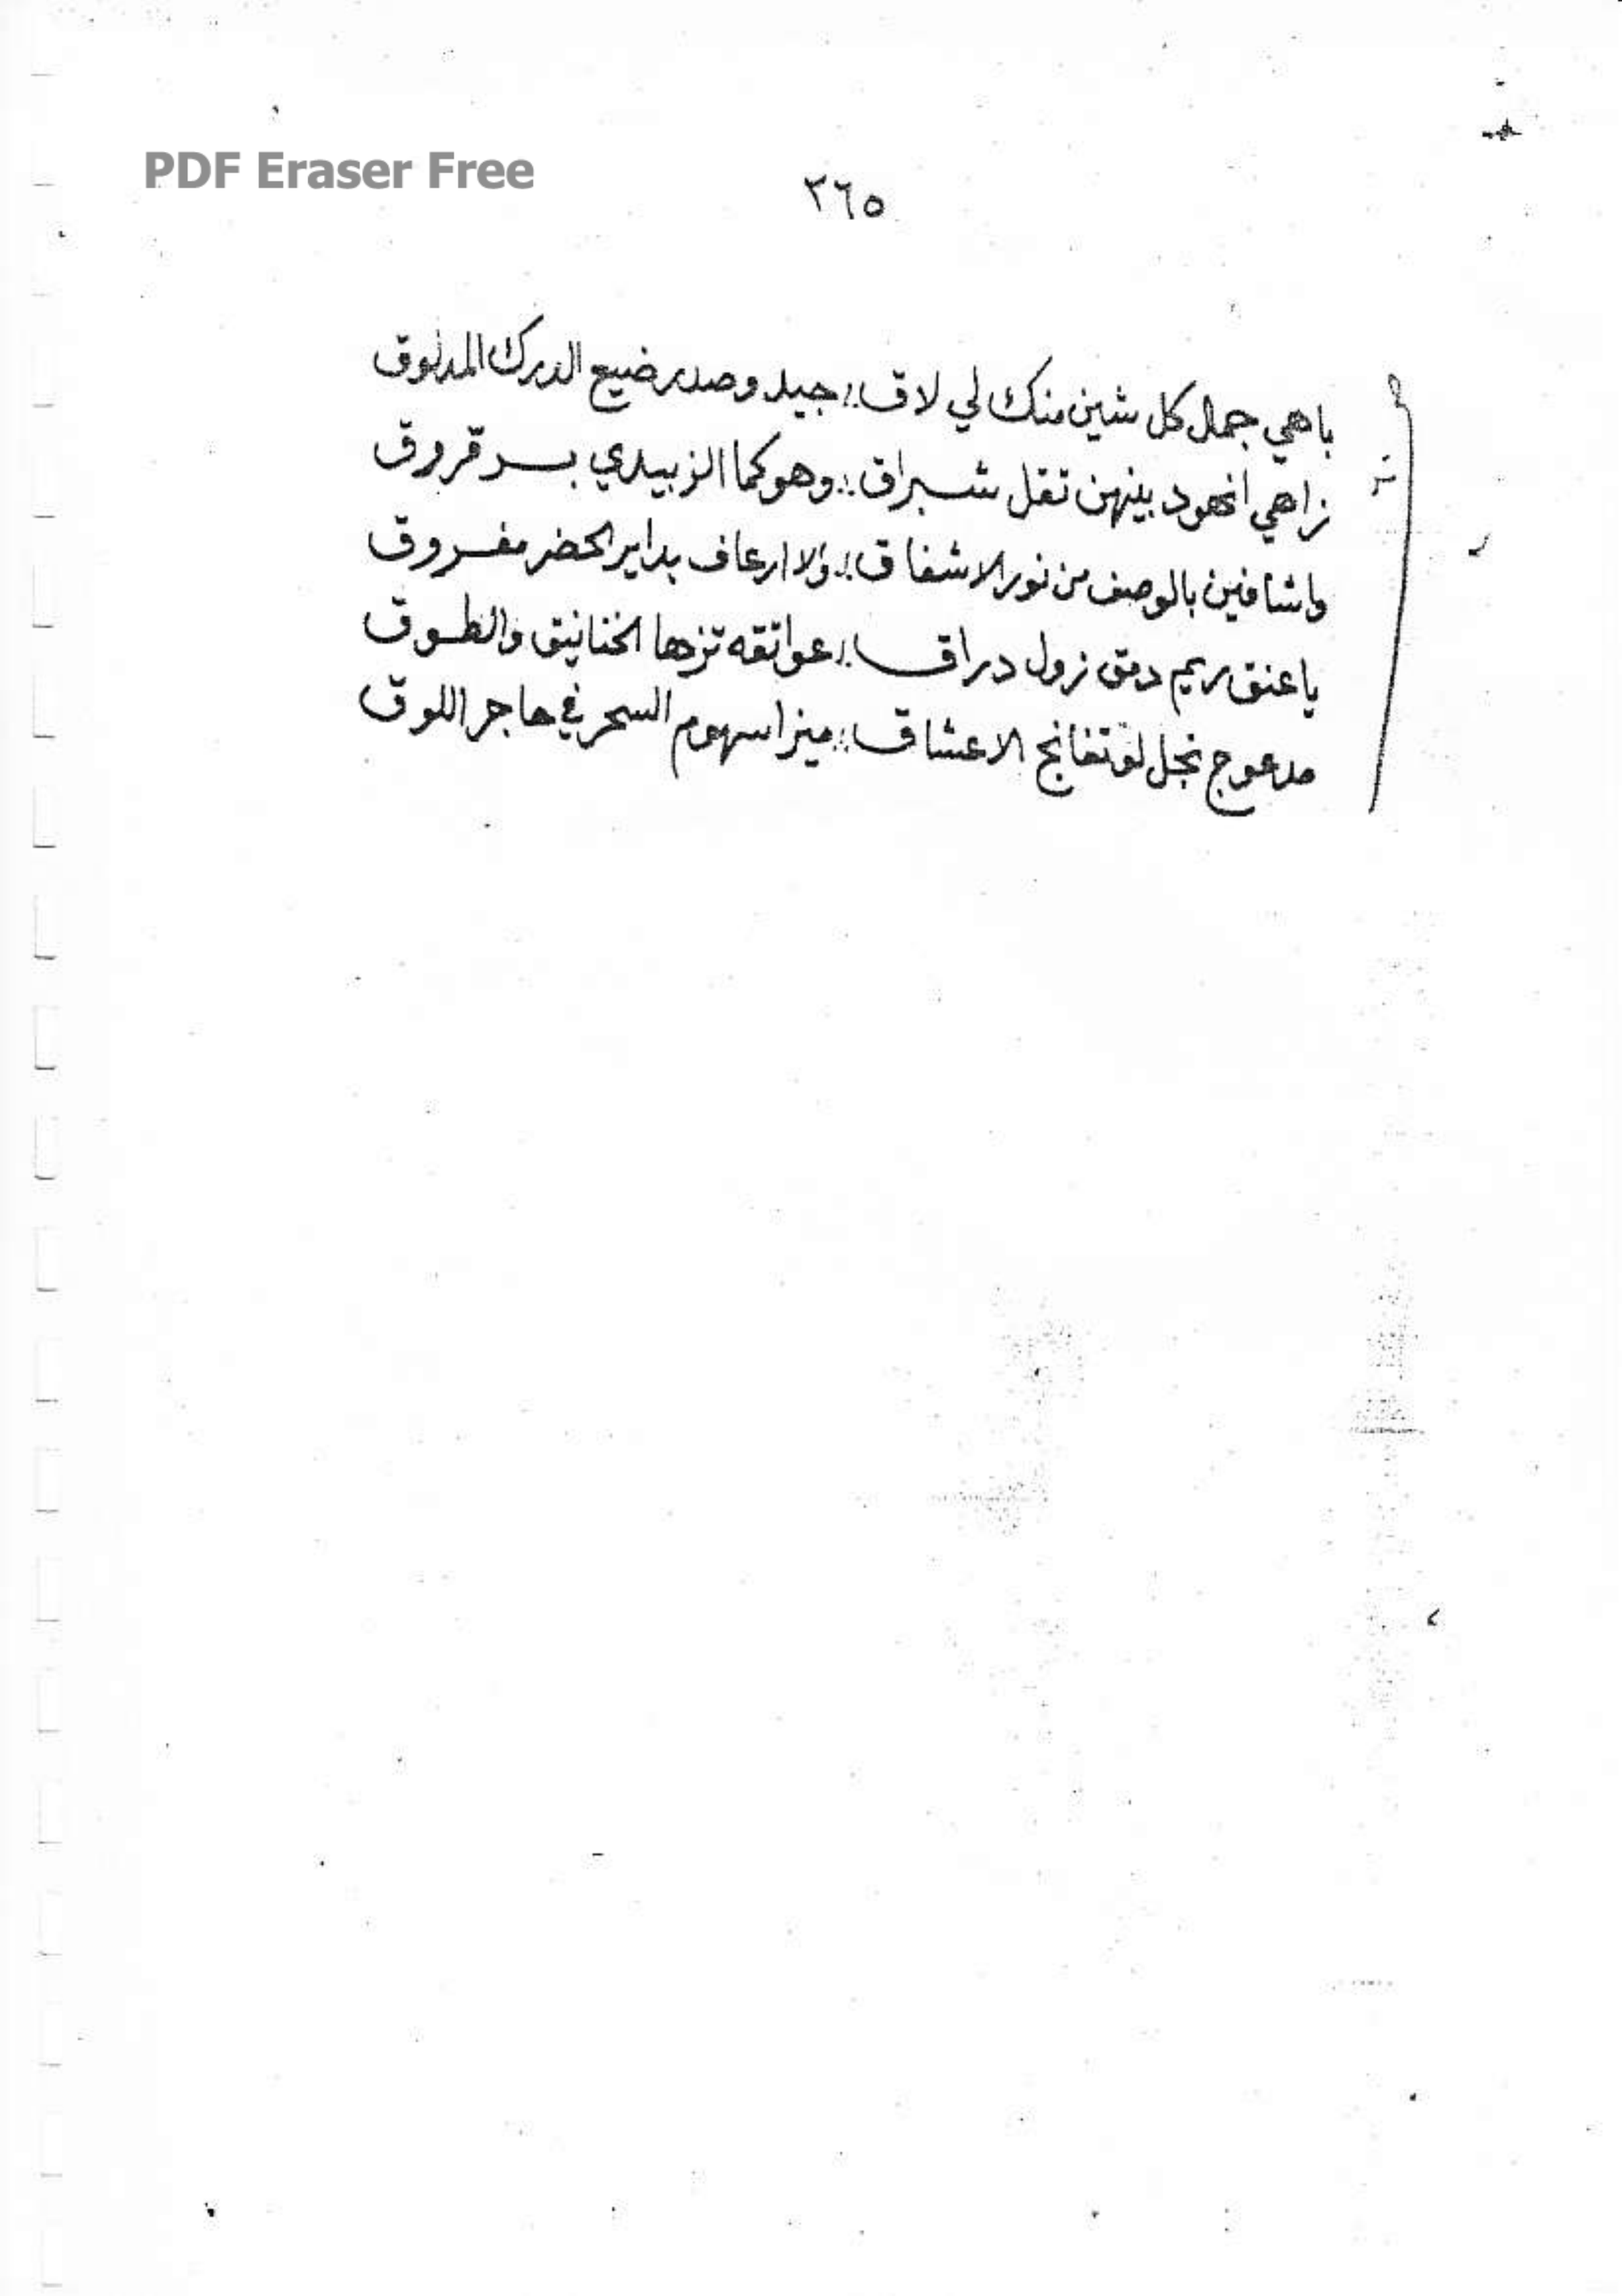 PDF Eraser Free
٣٦٥
باهي جمل كل شين منك لي لاق :: جيد وصدر ضييع الدرك المدلوق
زاهي انهود بينهن تقل شبراق :: وهو كما الزبيدي بسر قروق
واشافين بالوصف من نور الاشفاق :: ولا ارعاف بداير الخضر مفروق
ياعنق ريم دمق زول دراق :: عواتقه تزها الخنانيق والطوق
مدعوج نجل لو تفانج الاعشاق :: ميزا سهوم السحر في هاجر اللوق